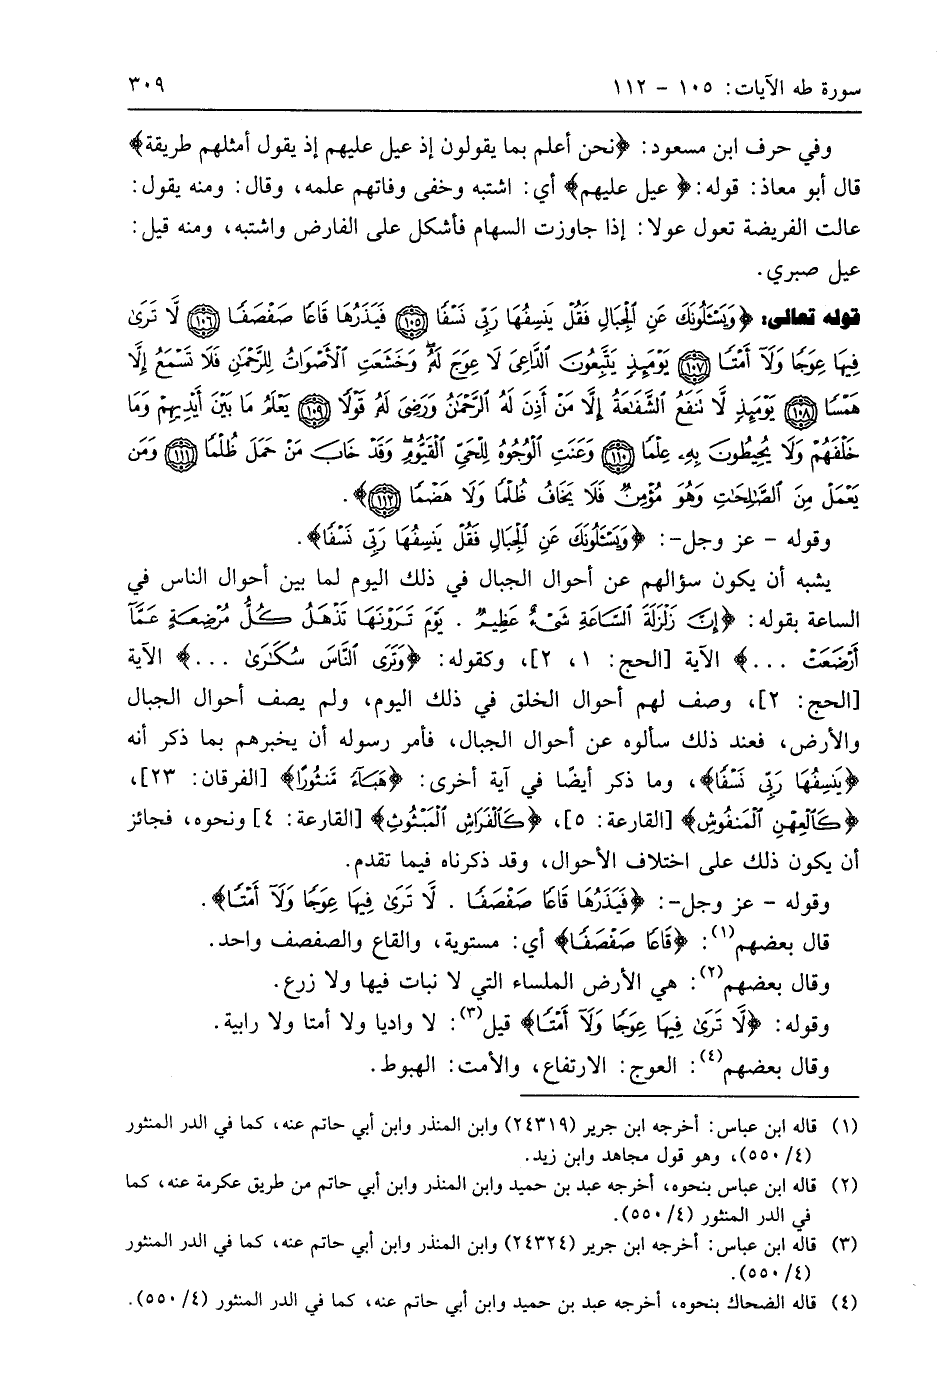 سورة طه الآيات: ١٠٥ - ١١٢ ٣٠٩
وفي حرف ابن مسعود: ﴿نحن أعلم بما يقولون إذ عيل عليهم إذ يقول أمثلهم طريقة﴾
قال أبو معاذ: قوله: ﴿ عيل عليهم﴾ أي: اشتبه وخفى وفاتهم علمه، وقال: ومنه يقول:
عالت الفريضة تعول عولا: إذا جاوزت السهام فأشكل على الفارض واشتبه، ومنه قيل:
عيل صبري.
قوله تعالى: ﴿وَيَسْـَٔلُونَكَ عَنِ ٱلْجِبَالِ فَقُلْ يَنسِفُهَا رَبِّى نَسْفًا ١٠٥ فَيَذَرُهَا قَاعًا صَفْصَفًا ١٠٦ لَّا تَرَىٰ
فِيهَا عِوَجًا وَلَآ أَمْتًا ١٠٧ يَوْمَئِذٍ يَتَّبِعُونَ ٱلدَّاعِىَ لَا عِوَجَ لَهُۥ وَخَشَعَتِ ٱلْأَصْوَاتُ لِلرَّحْمَٰنِ فَلَا تَسْمَعُ إِلَّا
هَمْسًا ١٠٨ يَوْمَئِذٍ لَّا تَنفَعُ ٱلشَّفَٰعَةُ إِلَّا مَنْ أَذِنَ لَهُ ٱلرَّحْمَٰنُ وَرَضِىَ لَهُۥ قَوْلًا ١٠٩ يَعْلَمُ مَا بَيْنَ أَيْدِيهِمْ وَمَا
خَلْفَهُمْ وَلَا يُحِيطُونَ بِهِۦ عِلْمًا ١١٠ وَعَنَتِ ٱلْوُجُوهُ لِلْحَىِّ ٱلْقَيُّومِ وَقَدْ خَابَ مَنْ حَمَلَ ظُلْمًا ١١١ وَمَن
يَعْمَلْ مِنَ ٱلصَّٰلِحَٰتِ وَهُوَ مُؤْمِنٌ فَلَا يَخَافُ ظُلْمًا وَلَا هَضْمًا ١١٢﴾.
وقوله - عز وجل-: ﴿وَيَسْـَٔلُونَكَ عَنِ ٱلْجِبَالِ فَقُلْ يَنسِفُهَا رَبِّى نَسْفًا﴾.
يشبه أن يكون سؤالهم عن أحوال الجبال في ذلك اليوم لما بين أحوال الناس في
الساعة بقوله: ﴿إِنَّ زَلْزَلَةَ ٱلسَّاعَةِ شَىْءٌ عَظِيمٌ . يَوْمَ تَرَوْنَهَا تَذْهَلُ كُلُّ مُرْضِعَةٍ عَمَّآ
أَرْضَعَتْ ...﴾ الآية [الحج: ١، ٢]، وكقوله: ﴿وَتَرَى ٱلنَّاسَ سُكَٰرَىٰ ...﴾ الآية
[الحج: ٢]، وصف لهم أحوال الخلق في ذلك اليوم، ولم يصف أحوال الجبال
والأرض، فعند ذلك سألوه عن أحوال الجبال، فأمر رسوله أن يخبرهم بما ذكر أنه
﴿يَنسِفُهَا رَبِّى نَسْفًا﴾، وما ذكر أيضًا في آية أخرى: ﴿هَبَآءً مَّنثُورًا﴾ [الفرقان: ٢٣]،
﴿كَٱلْعِهْنِ ٱلْمَنفُوشِ﴾ [القارعة: ٥]، ﴿كَٱلْفَرَاشِ ٱلْمَبْثُوثِ﴾ [القارعة: ٤] ونحوه، فجائز
أن يكون ذلك على اختلاف الأحوال، وقد ذكرناه فيما تقدم.
وقوله - عز وجل-: ﴿فَيَذَرُهَا قَاعًا صَفْصَفًا . لَّا تَرَىٰ فِيهَا عِوَجًا وَلَآ أَمْتًا﴾.
قال بعضهم(١): ﴿قَاعًا صَفْصَفًا﴾ أي: مستوية، والقاع والصفصف واحد.
وقال بعضهم(٢): هي الأرض الملساء التي لا نبات فيها ولا زرع.
وقوله: ﴿لَّا تَرَىٰ فِيهَا عِوَجًا وَلَآ أَمْتًا﴾ قيل(٣): لا واديا ولا أمتا ولا رابية.
وقال بعضهم(٤): العوج: الارتفاع، والأمت: الهبوط.
(١) قاله ابن عباس: أخرجه ابن جرير (٢٤٣١٩) وابن المنذر وابن أبي حاتم عنه، كما في الدر المنثور
(٤/ ٥٥٠)، وهو قول مجاهد وابن زيد.
(٢) قاله ابن عباس بنحوه، أخرجه عبد بن حميد وابن المنذر وابن أبي حاتم من طريق عكرمة عنه، كما
في الدر المنثور (٤/ ٥٥٠).
(٣) قاله ابن عباس: أخرجه ابن جرير (٢٤٣٢٤) وابن المنذر وابن أبي حاتم عنه، كما في الدر المنثور
(٤/ ٥٥٠).
(٤) قاله الضحاك بنحوه، أخرجه عبد بن حميد وابن أبي حاتم عنه، كما في الدر المنثور (٤/ ٥٥٠).